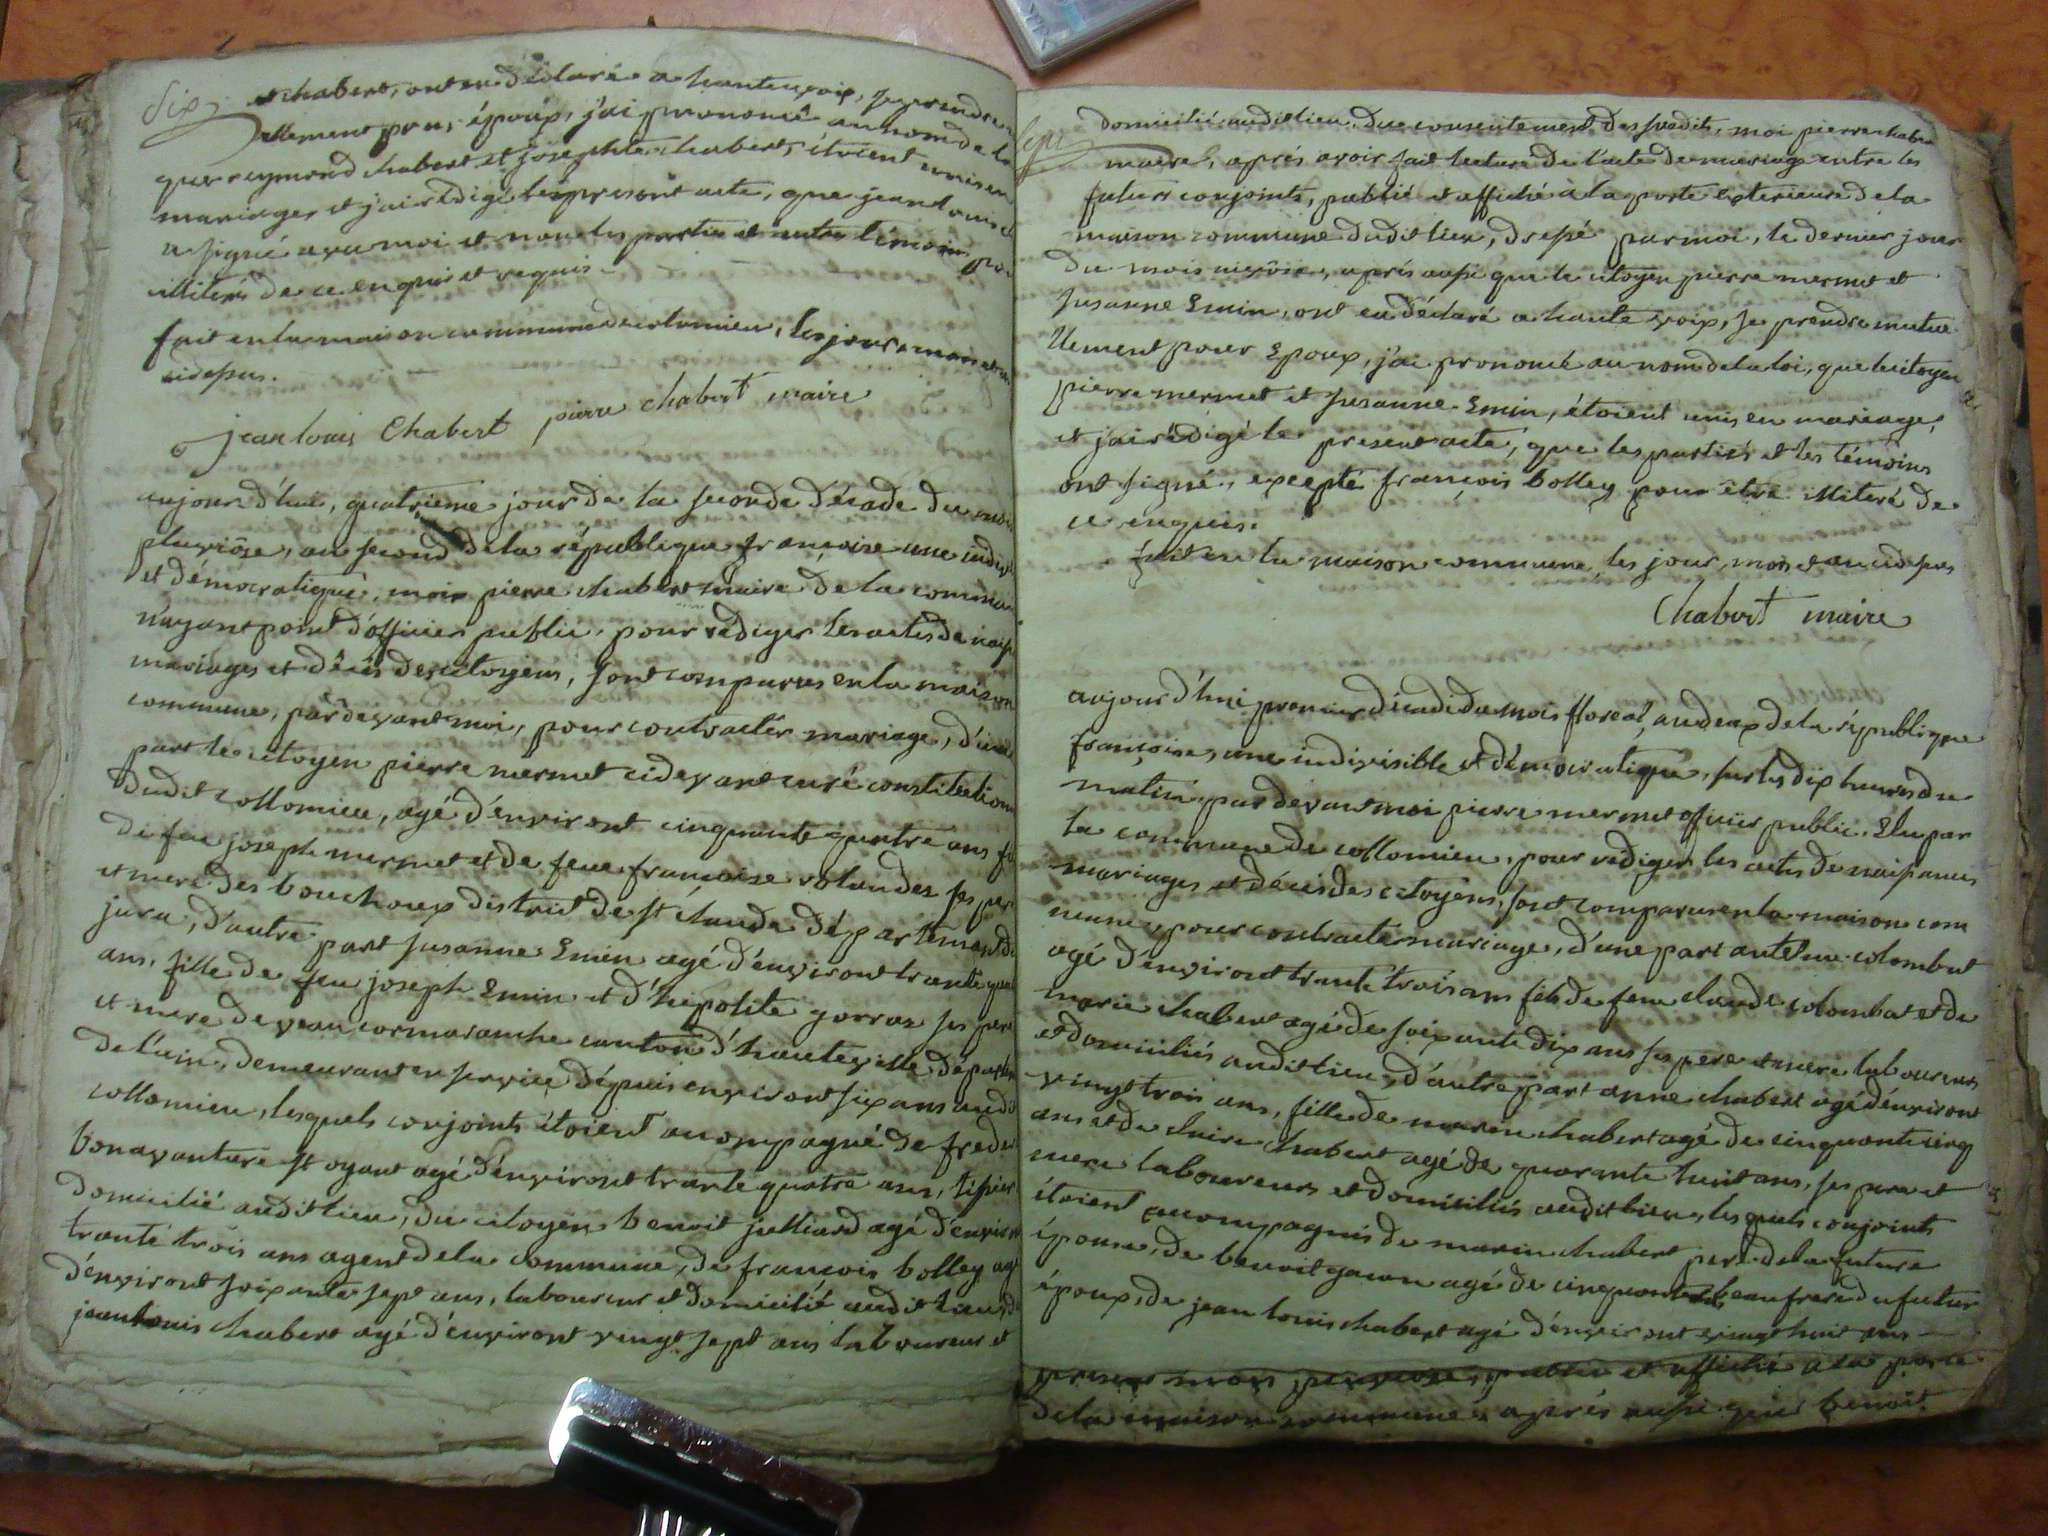 Six
chabert, ont eu déclaré a haute voix, se prendre
allement pour époux, j'ai prononcé au nom de la
que reymond chabert et josephte chabert, étoient unis en
mariages et j'ai rédigé le present acte, que jean louis
a signé avec moi et non les parties et autres témoins pour
illiterés de ce enquis et requis
fait en la maison commune de colomieu, les jour, mois et an
cidessus.
jean louis Chabert pierre chabert maire
aujourd'hui, quatrieme jour de la seconde décade du mois
pluviôse, an second de la république françoise une indivi
et démocratique, moi pierre chabert maire de la commu
n'ayant point d'officier public, pour rédiger les actes de naiss
mariages et décés des citoyens, sont comparus en la maison
commune, pardevant moi, pour contracter mariage, d'une
part le citoyen pierre mermet cidevant curé constitution
dudit collomieu, agé d'environt cinquante quatre ans fi
de feu joseph mermet et de feue francoise rolandez ses per
et mere des bouchoux district de st claude département du
jura, d'autre part susanne Emin agé d'environt trante qua
ans, fille de feu joseph Emin et d'hipolite gorraz ses pere
et mere de veau cormaranche canton d'hauteville départem
de l'ain, demeurant en service dépuis environt six ans audi
collomieu, lesquels conjoints étoient acompagné de frede
bonavanture st oyant agé d'environt trante quatre ans, tissier
domicilié audit lieu, du citoyen benoit julliard agé d'environt
trante trois ans agent de la commune, de françois bolley agé
d'environt soixante sept ans, laboureur et domicilié audit lieu, de
jean louis chabert agé d'environt vingt sept ans laboureur et
Sept
domicilié audit lieu, du consentement des susdits, moi pierre chaber
maire, aprés avoir fait lecture de l'acte de mariage entre les
futurs conjoints, publié et affiché à la porte exterieure de la
maison commune dudit lieu, dressé par moi, le dernier jour
du mois nivôse, aprés aussi que le citoyen pierre mermet et
susanne Emin, ont eu déclaré a haute voix, se prendre mutue
llement pour Epoux, j'ai prononcé au nom de la loi, que le citoyen
pierre mermet et susanne Emin, étoient unis en mariage,
et j'ai rédigé le present acte, que les partiés et les témoins
ont signé, excepté françois bolley pour être illiteré de
ce enquis.
fait en la maison commune, les jour, mois et an cidessus
Chabert maire
aujourd'hui premier décadi du mois floréal, an deux de la république
françoise, une indivisible et démocratique, sur les dix heures du
matin, pardevant moi pierre mermet officier public, Elu par
la commune de collomieu, pour rédiger les actes de naissances
mariages et décés des citoyens, sont comparus en la maison com
mune, pour contracter mariage, d'une part antelme colombat
agé d'environt trante trois ans fils de feu claude colombat et de
marie chabert agé de soixante dix ans ses pere et mere laboureurs
et domiciliés audit lieu, d'autre part anne chabert agé d'environt
vingt trois ans, fille de marin chabert agé de cinquante cinq
ans et de claire chabert agé de quarante huit ans, ses pere et
mere laboureurs et domiciliés audit lieu, lesquels conjoints
étoient acompagnés de marin chabert pere de la future
épouse, de benoit gacon agé de cinquante beau frere du futur
époux, de jean louis chabert agé d'environt vingt huit ans
publié et affiché a la porte
de la maison commune, aprés aussi que benoit